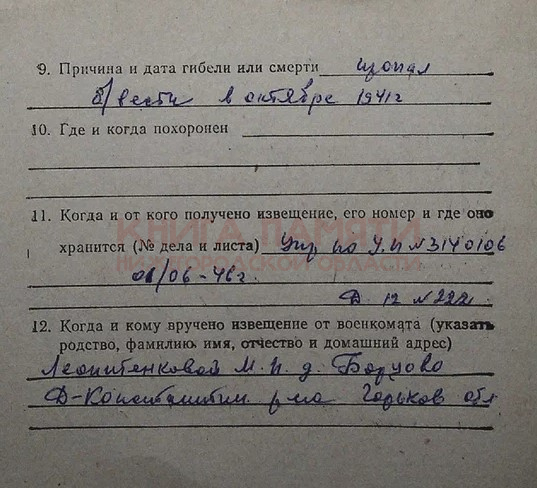 9. Причина и дата гибели или смерти пропал
б/вести в октябре 1941г
10. Где и когда похоронен
11. Когда и от кого получено извещение, его номер и где оно
КНИГА ПАМЯТИ
хранится (№ дела и листа) Упр по У.П №3140106
НИЖЕГОРОДСКОЙ ОБЛАСТИ
01/06-46г.
Д. 12 №222.
12. Когда и кому вручено извещение от военкомата (указать
родство, фамилию, имя, отчество и домашний адрес)
М. П. д. Борцово
Д-Константин р-на Горьков обл